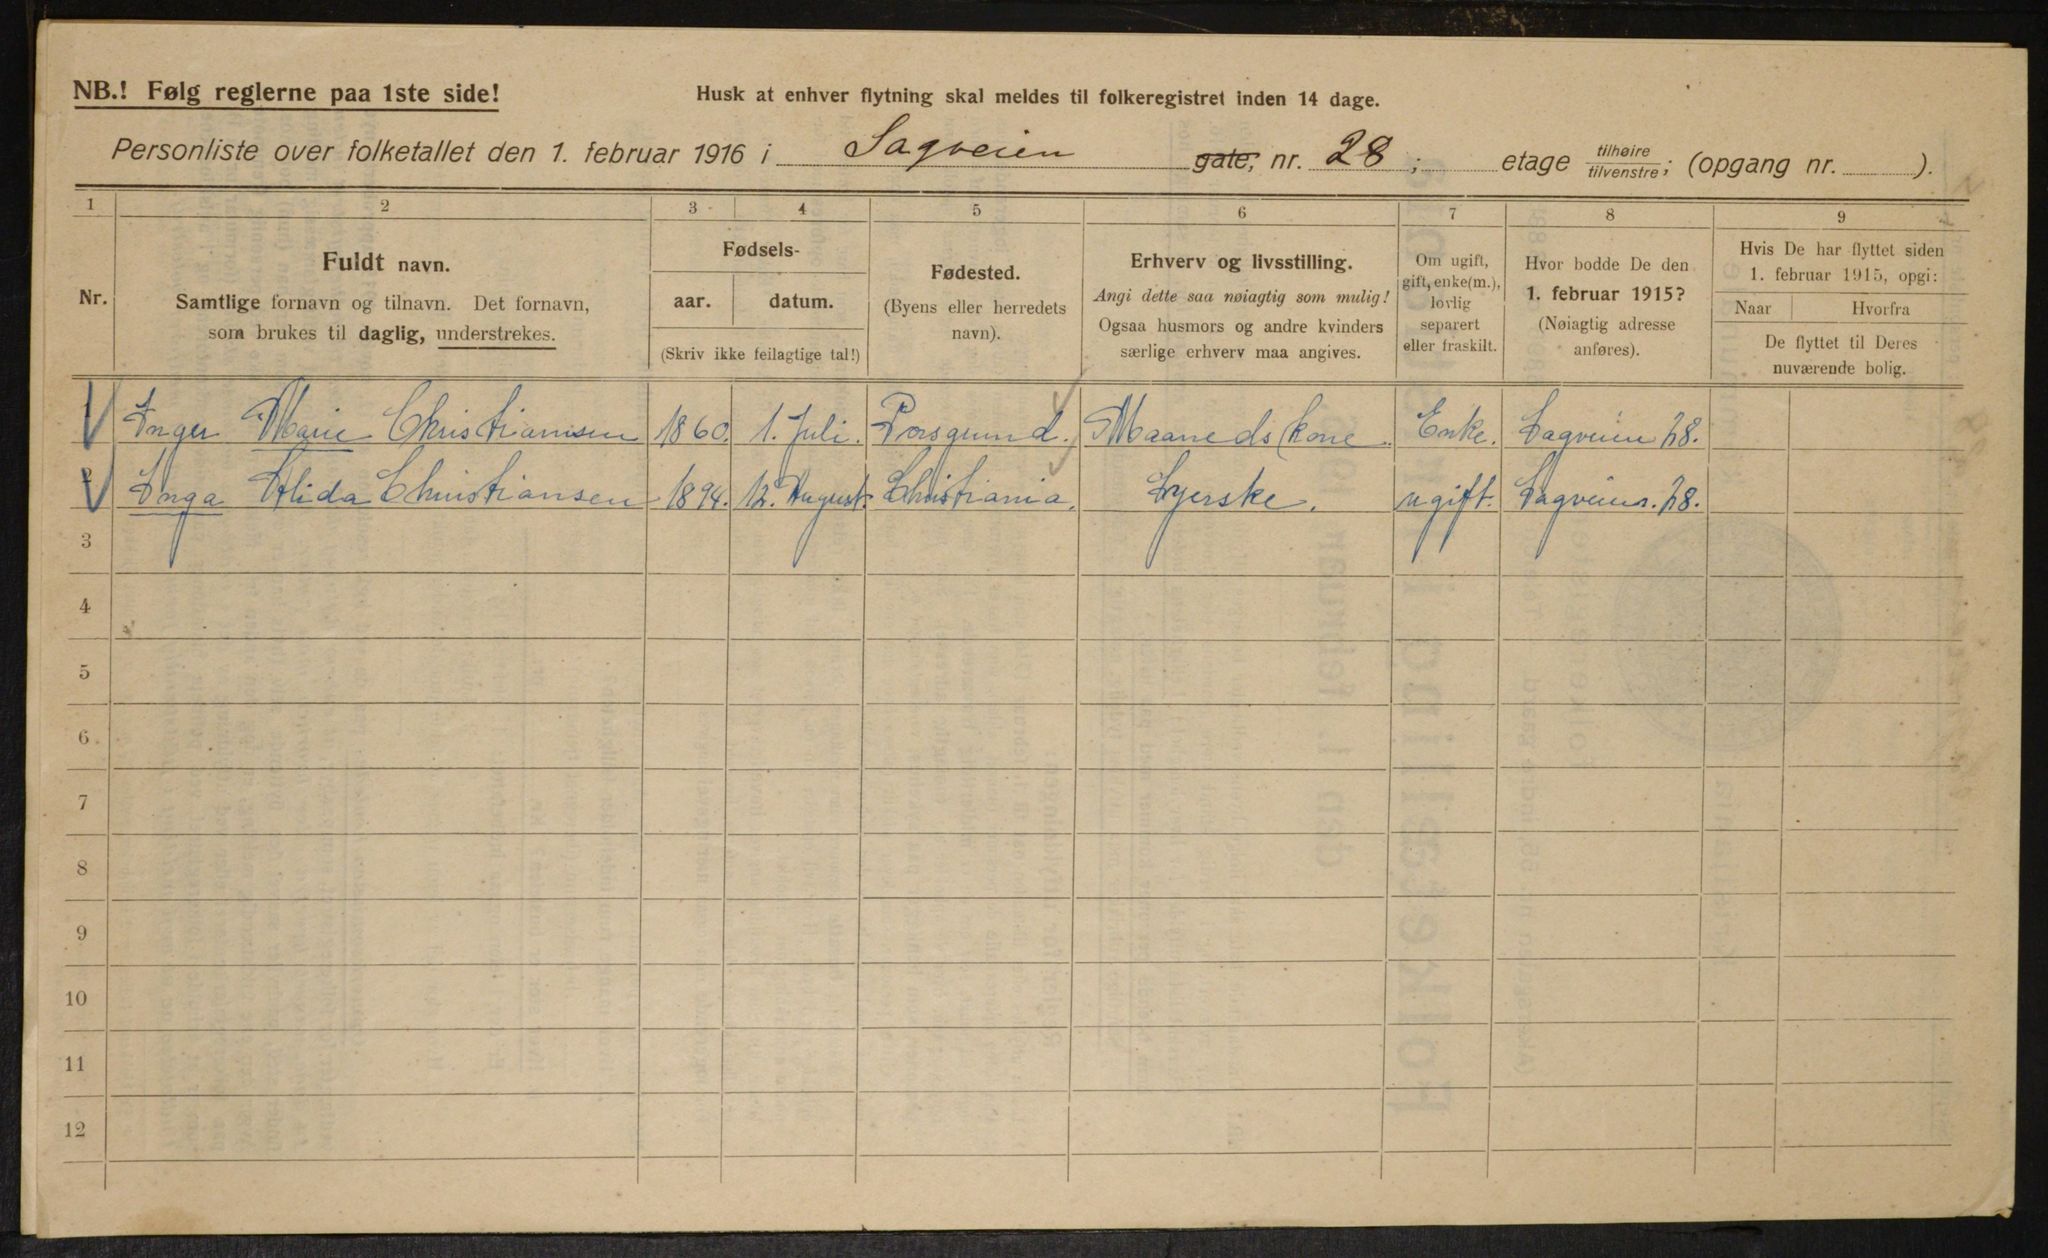 NB.! Følg reglerne paa 1ste side!
Husk at enhver flytning skal meldes til folkeregistret inden 14 dage.
Personliste over folketallet den 1. februar 1916 i Sagveien gate, nr. 28; etage tilhøire/tilvenstre; (opgang nr. ).
1 2 3 4 5 6 7 8 9
Nr.
Fuldt navn.
Samtlige fornavn og tilnavn. Det fornavn,
som brukes til daglig, understrekes.
Fødsels-
aar. datum.
(Skriv ikke feilagtige tal!)
Fødested.
(Byens eller herredets
navn).
Erhverv og livsstilling.
Angi dette saa nøiagtig som mulig!
Ogsaa husmors og andre kvinders
særlige erhverv maa angives.
Om ugift,
gift, enke(m.),
lovlig
separert
eller fraskilt.
Hvor bodde De den
1. februar 1915?
(Nøiagtig adresse
anføres).
Hvis De har flyttet siden
1. februar 1915, opgi:
Naar Hvorfra
De flyttet til Deres
nuværende bolig.
Inger Marie Christiansen 1860. 1. Juli. Porsgrund. Maanedskone. Enke. Sagveien 28.
2 Inga Alida Christiansen 1894. 12. August. Christiania. Syerske. ugift. Sagveien. 28.
3
4
5
6
7
8
9
10
11
12